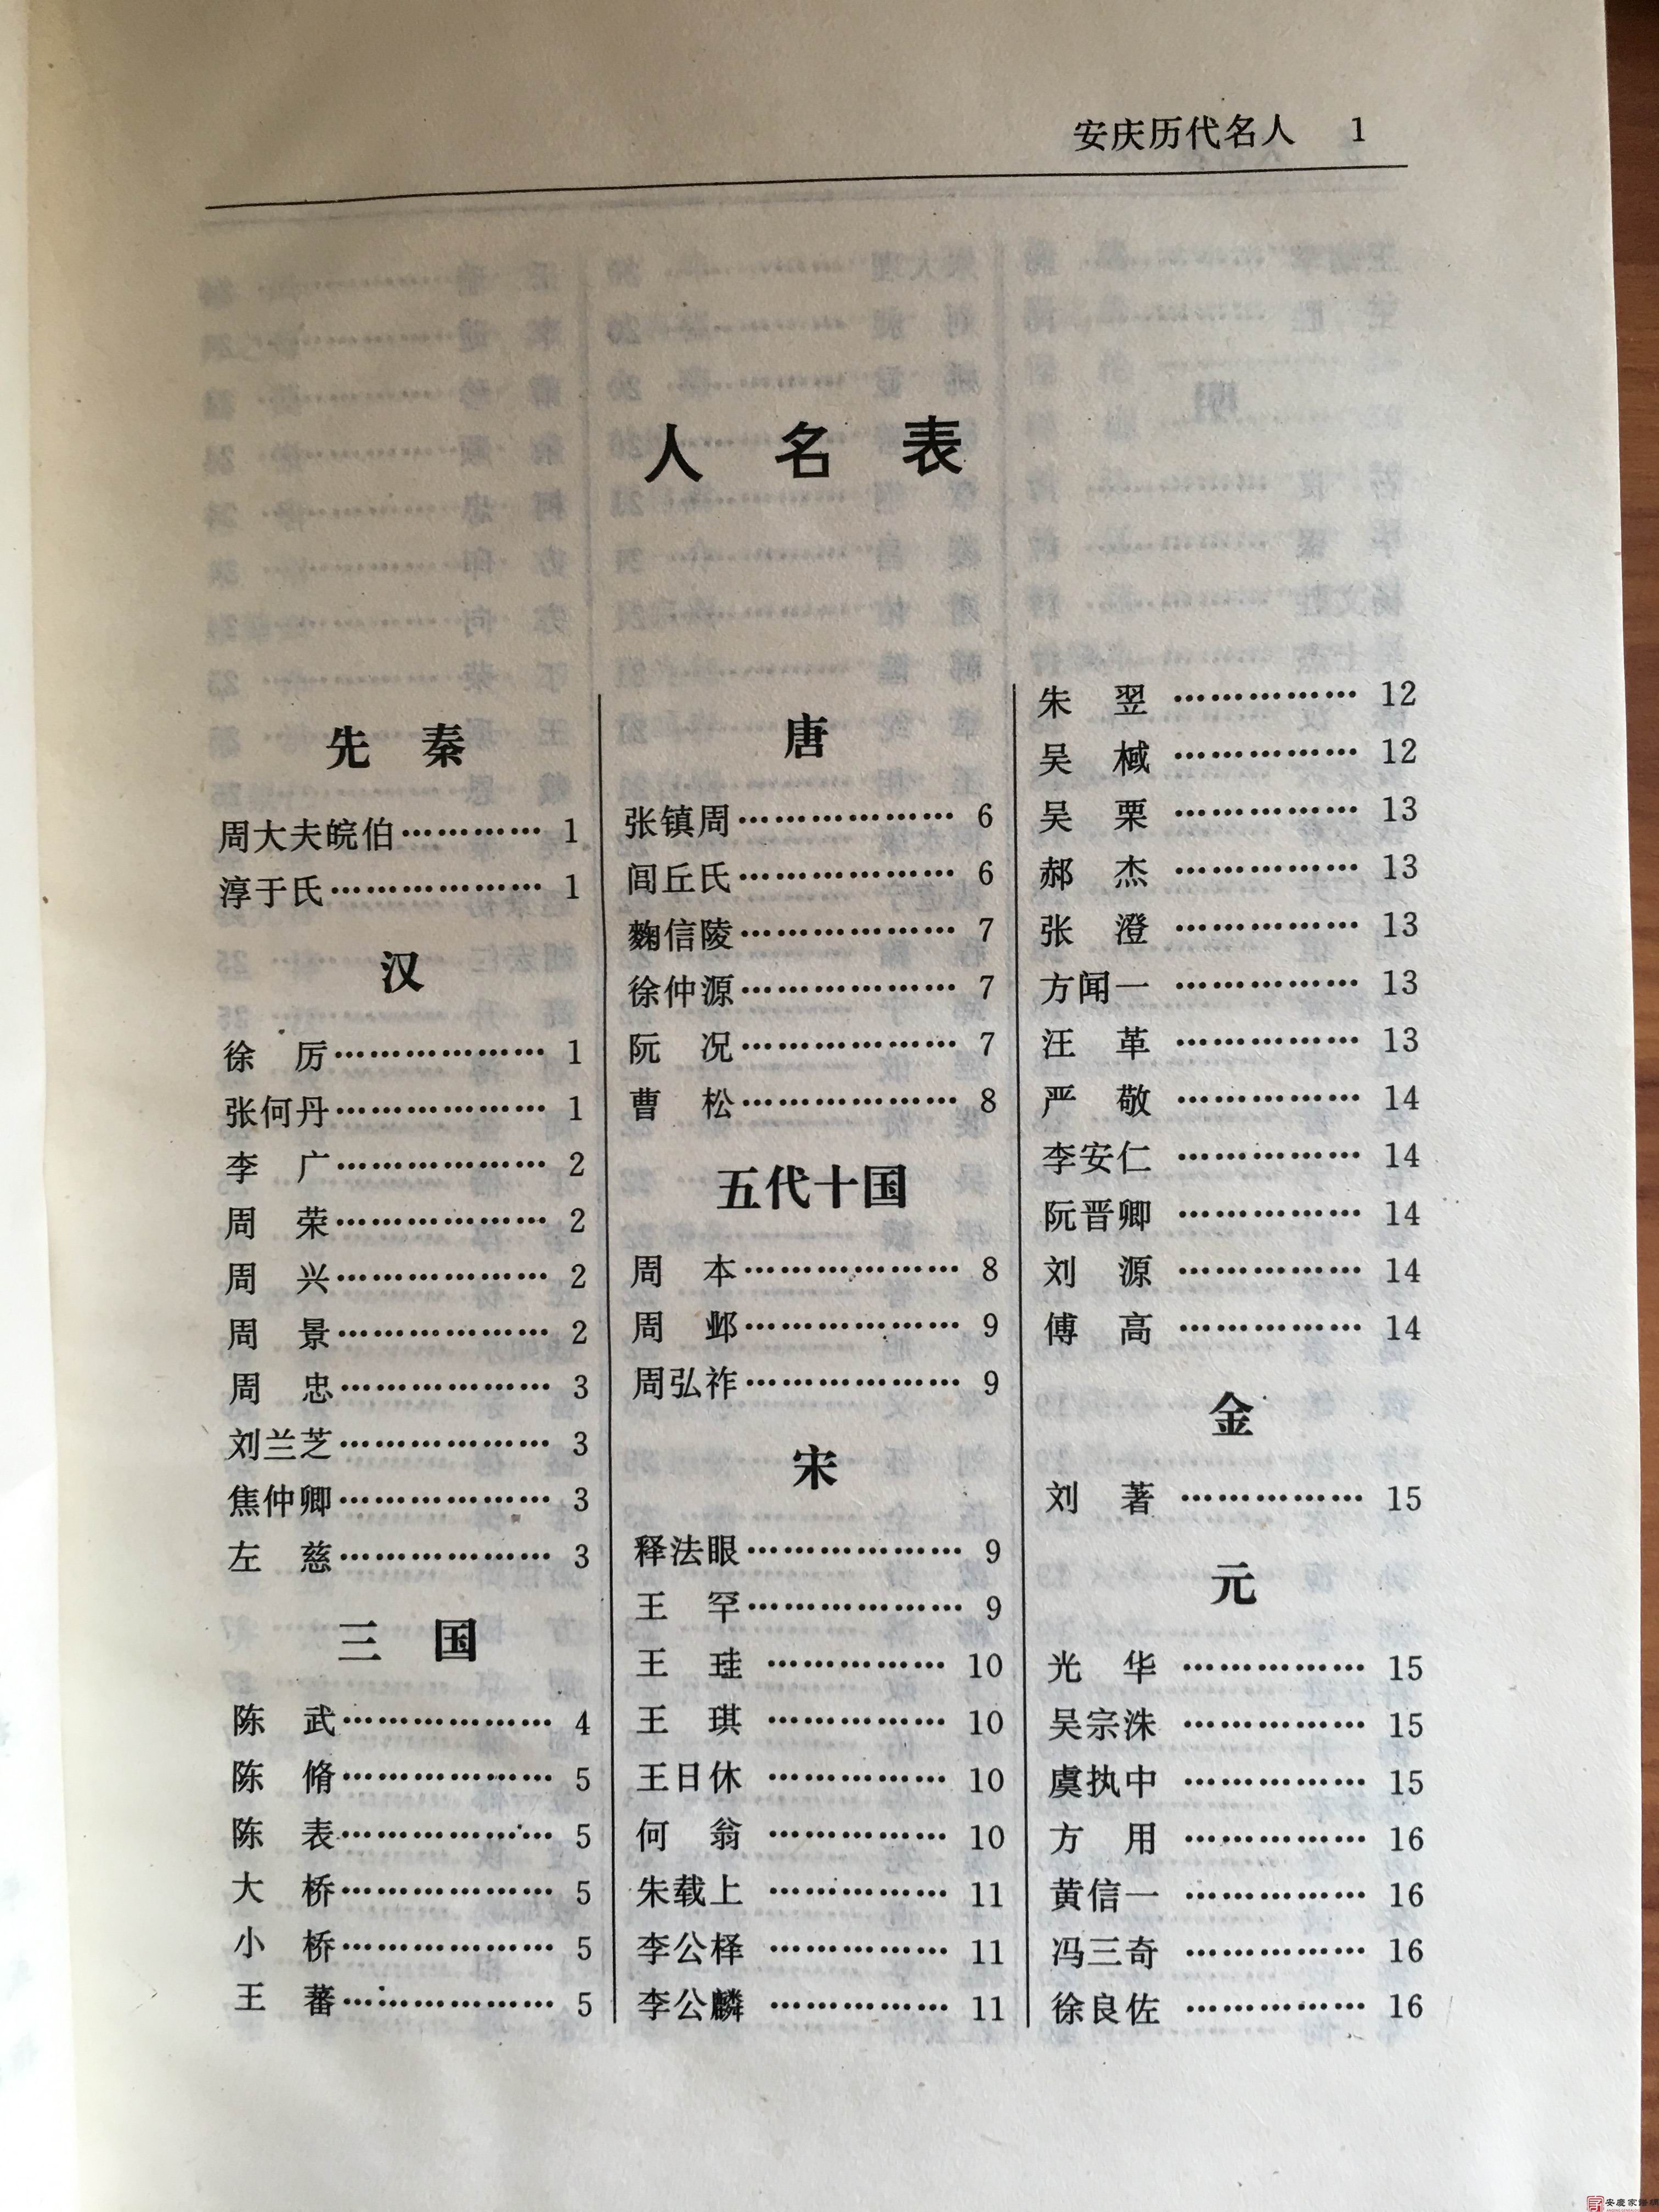 安庆历代名人 1
人名表
先秦
周大夫皖伯………… 1
淳于氏……………… 1
汉
徐 厉……………… 1
张何丹……………… 1
李 广……………… 2
周 荣……………… 2
周 兴……………… 2
周 景……………… 2
周 忠……………… 3
刘兰芝……………… 3
焦仲卿……………… 3
左 慈……………… 3
三国
陈 武……………… 4
陈 脩……………… 5
陈 表……………… 5
大 桥……………… 5
小 桥……………… 5
王 蕃……………… 5
唐
张镇周……………… 6
闾丘氏……………… 6
麴信陵……………… 7
徐仲源……………… 7
阮 况……………… 7
曹 松……………… 8
五代十国
周 本……………… 8
周 邺……………… 9
周弘祚……………… 9
宋
释法眼……………… 9
王 罕……………… 9
王 珪 …………… 10
王 琪 …………… 10
王日休 …………… 10
何 翁 …………… 10
朱载上 …………… 11
李公柽 …………… 11
李公麟 …………… 11
朱 翌 …………… 12
吴 棫 …………… 12
吴 栗 …………… 13
郝 杰 …………… 13
张 澄 …………… 13
方闻一 …………… 13
汪 革 …………… 13
严 敬 …………… 14
李安仁 …………… 14
阮晋卿 …………… 14
刘 源 …………… 14
傅 高 …………… 14
金
刘 著 …………… 15
元
光 华 …………… 15
吴宗洙 …………… 15
虞执中 …………… 15
方 用 …………… 16
黄信一 …………… 16
冯三奇 …………… 16
徐良佐 …………… 16